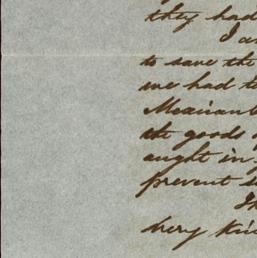 they had
I a
to save the
we had to
Mexican
the goods
aught in
prevent s
very kin